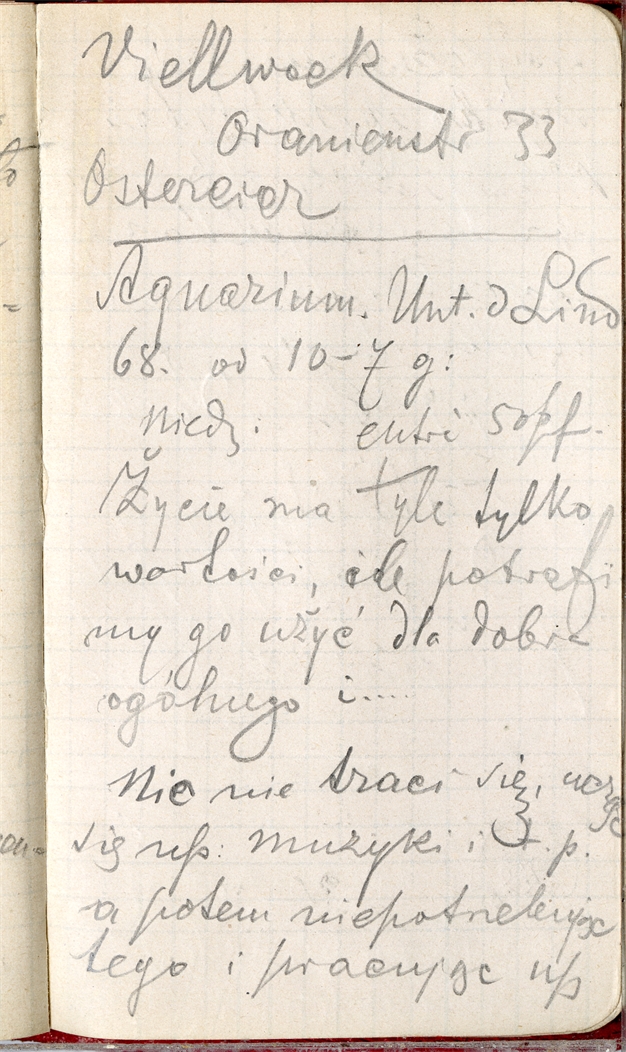 Viellwock
Oranienstr 33
Ostereier
Aquarium. Unt. d Lind
68. od 10-7 g:
niedz. entré 50 pf.
Życie ma tyle tylko
wartości, ile potrafi
my go użyć dla dobra
ogólnego i.....
Nic nie traci się, ucząc
się np: muzyki i t. p.
a potem niepotrzebując
tego i pracując np